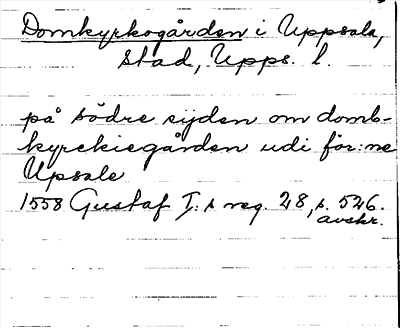 Domkyrkogården i Uppsala,
stad, Upps. l.
på södre sijden om domb-
kyrckiegården udi för:ne
Upsale
1558 Gustaf I:s reg. 28, s. 526.
avskr.